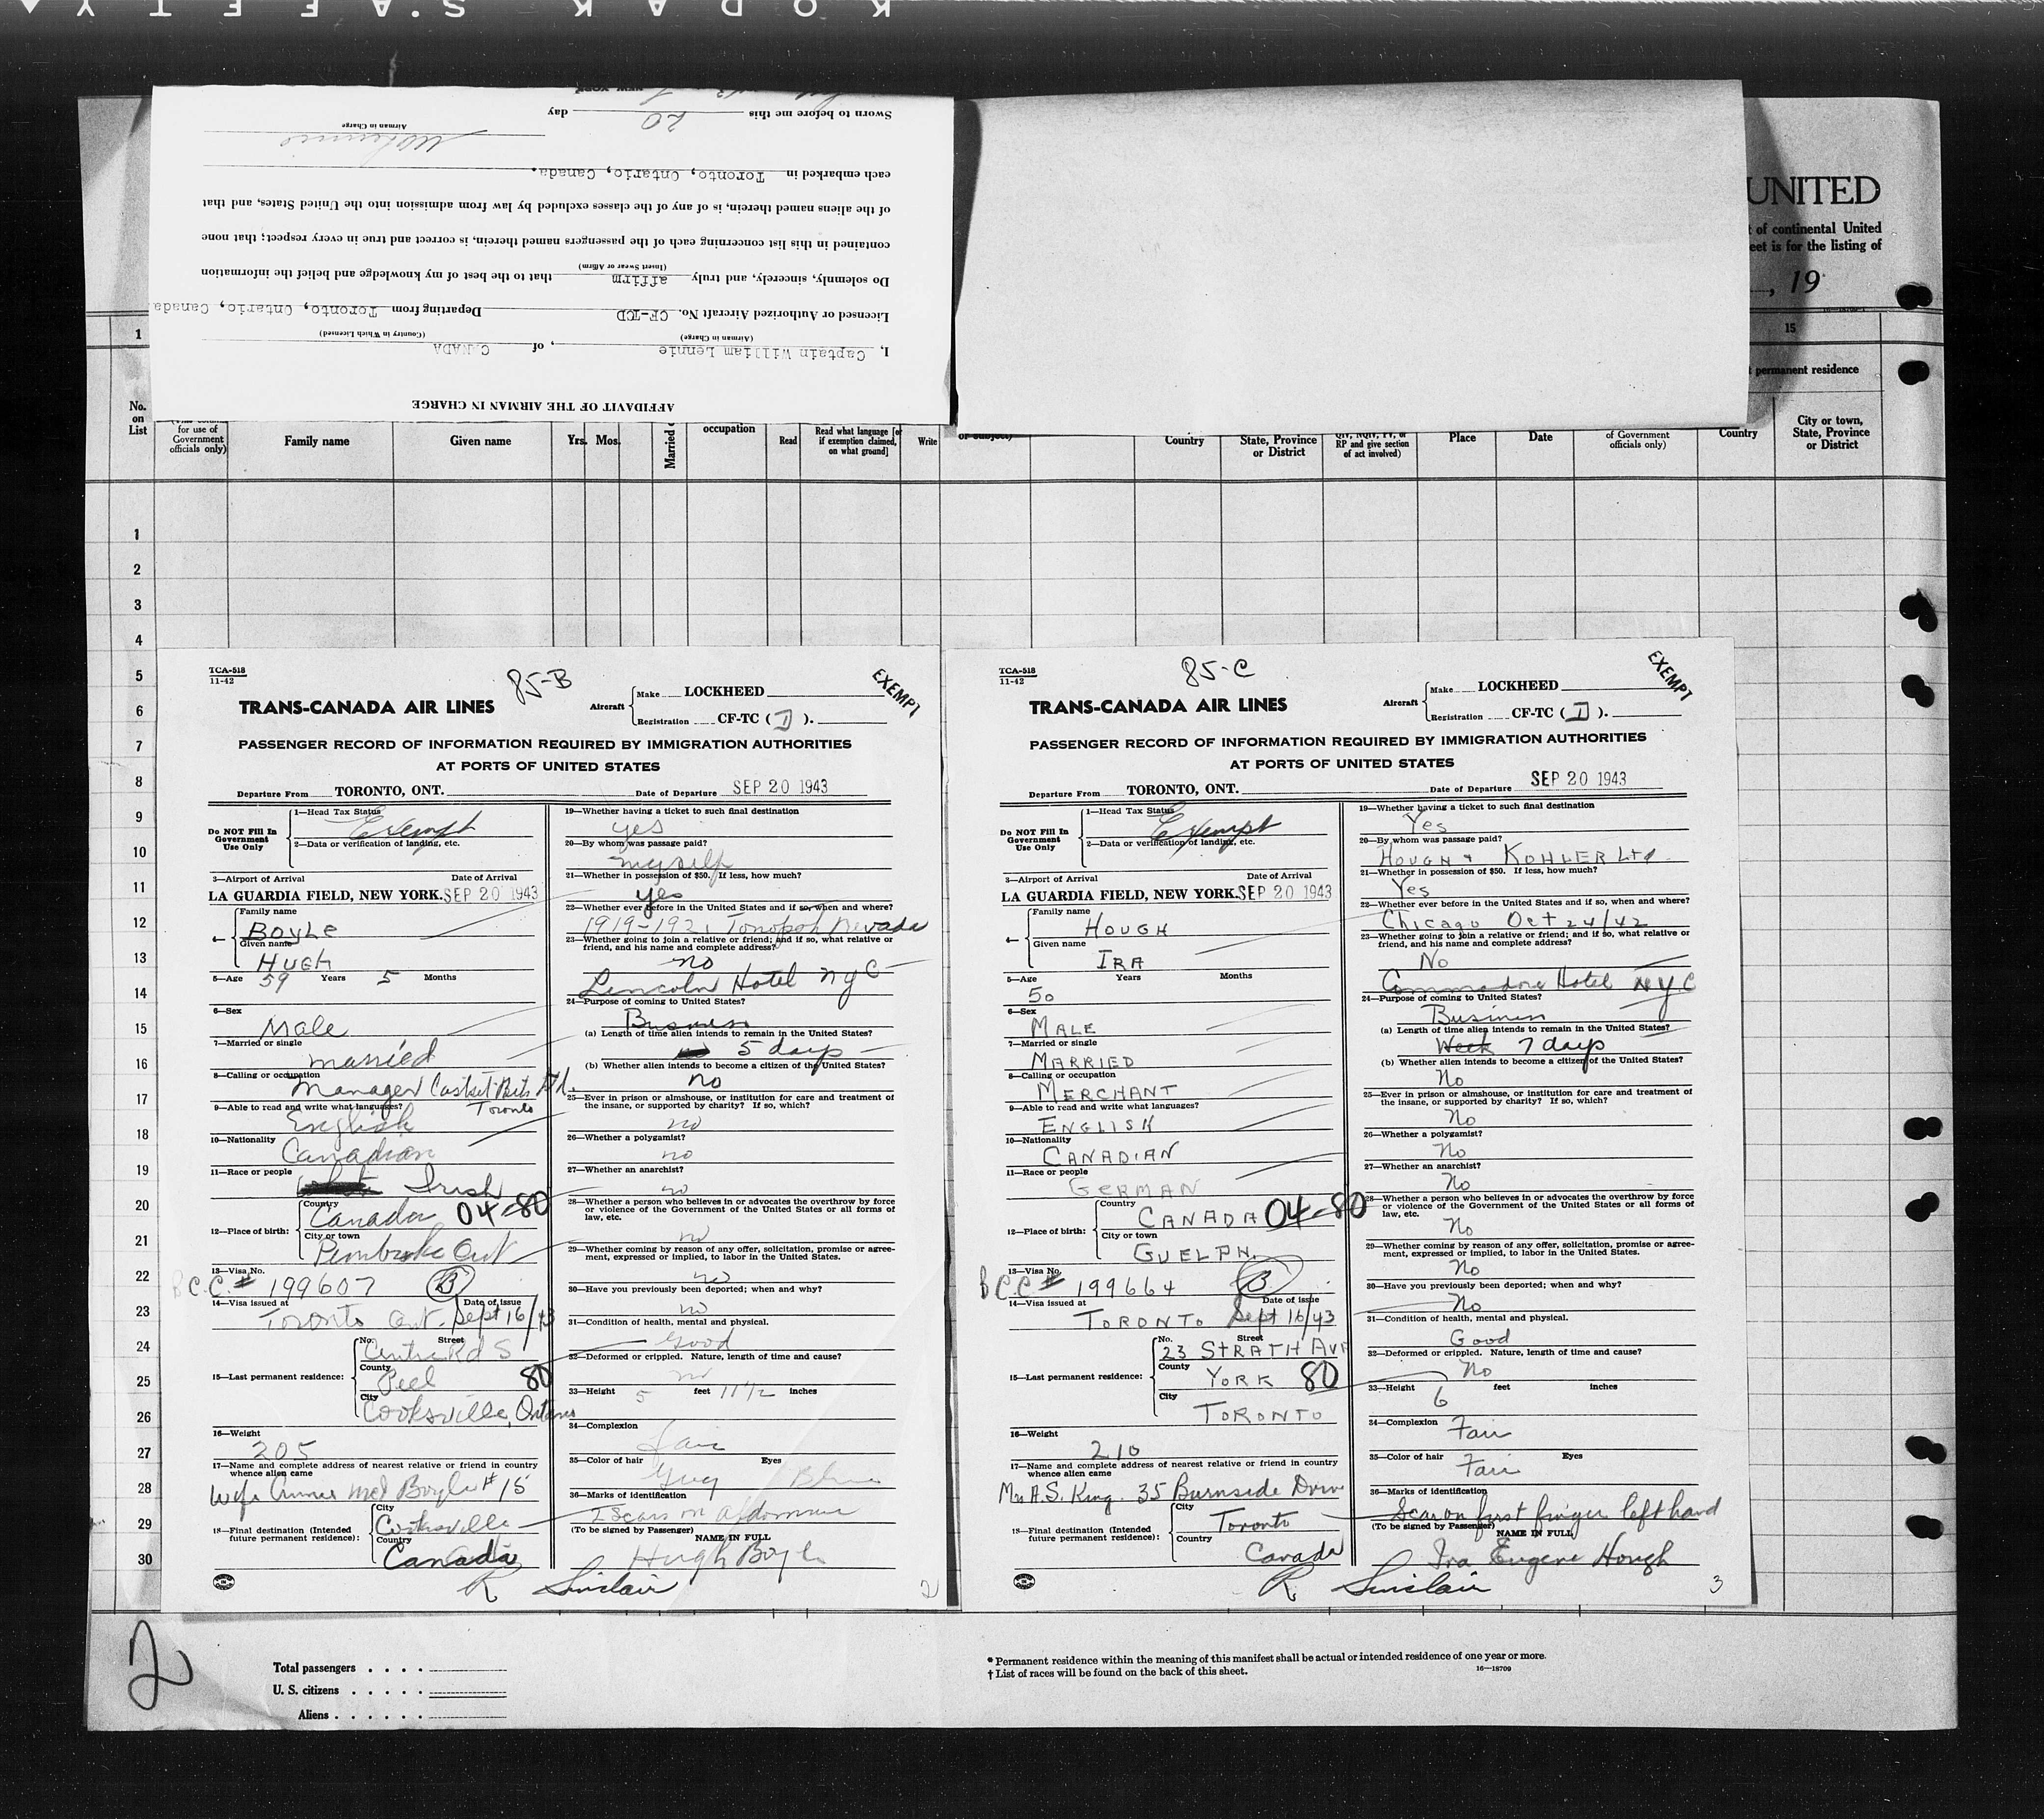 KODAK SAFETY
AFFIDAVIT OF THE AIRMAN IN CHARGE
I, Captain William Lennie, of CANADA
(Airman in Charge) (Country in Which Licensed)
Licensed or Authorized Aircraft No. CF-TCD Departing from Toronto, Ontario, Canada
Do solemnly, sincerely, and truly affirm that to the best of my knowledge and belief the information
(Insert Swear or Affirm)
contained in this list concerning each of the passengers named therein, is correct and true in every respect; that none
of the aliens named therein, is of any of the classes excluded by law from admission into the United States, and that
each embarked in Toronto, Ontario, Canada.
Airman in Charge
Sworn to before me this 20 day
NEW YORK
UNITED
t of continental United
eet is for the listing of
, 19
1
15
permanent residence
No.
on
List
for use of
Government
officials only)
Family name
Given name
Yrs.
Mos.
Married
occupation
Read
Read what language [or
if exemption claimed,
on what ground]
Write
or subject)
Country
State, Province
or District
QIV, NQIV, PV, or
RP and give section
of act involved)
Place
Date
of Government
officials only)
Country
City or town,
State, Province
or District
1
2
3
4
5
6
7
8
9
10
11
12
13
14
15
16
17
18
19
20
21
22
23
24
25
26
27
28
29
30
TCA-518
11-42
85-B
EXEMPT
TRANS-CANADA AIR LINES
Aircraft
Make LOCKHEED
Registration CF-TC ( D ).
PASSENGER RECORD OF INFORMATION REQUIRED BY IMMIGRATION AUTHORITIES
AT PORTS OF UNITED STATES
Departure From TORONTO, ONT. Date of Departure SEP 20 1943
Do NOT Fill In
Government
Use Only
1—Head Tax Status
Exempt
2—Data or verification of landing, etc.
3—Airport of Arrival Date of Arrival
LA GUARDIA FIELD, NEW YORK. SEP 20 1943
4—
Family name
BOYLE
Given name
HUGH
5—Age 59 Years 5 Months
6—Sex
Male
7—Married or single
married
8—Calling or occupation
Manager Casket Ltd.
9—Able to read and write what languages? Toronto
English
10—Nationality
Canadian
11—Race or people
Irish
12—Place of birth:
Country
Canada 04-80
City or town
Pembroke Ont
13—Visa No.
B.C.C. # 199607 B
14—Visa issued at Date of issue
Toronto Ont. Sept 16/43
15—Last permanent residence:
No. Street
Centre Rd S
County
Peel 80
City
Cooksville, Ontario
16—Weight
205
17—Name and complete address of nearest relative or friend in country
whence alien came
Wife Boyle # 15
18—Final destination (Intended
future permanent residence):
City
Cooksville
Country
Canada
19—Whether having a ticket to such final destination
yes
20—By whom was passage paid?
myself
21—Whether in possession of $50. If less, how much?
yes
22—Whether ever before in the United States and if so, when and where?
1919-1921 Tonopah Nevada
23—Whether going to join a relative or friend; and if so, what relative or
friend, and his name and complete address?
no
Lincoln Hotel NYC
24—Purpose of coming to United States?
Business
(a) Length of time alien intends to remain in the United States?
5 days
(b) Whether alien intends to become a citizen of the United States?
no
25—Ever in prison or almshouse, or institution for care and treatment of
the insane, or supported by charity? If so, which?
no
26—Whether a polygamist?
no
27—Whether an anarchist?
no
28—Whether a person who believes in or advocates the overthrow by force
or violence of the Government of the United States or all forms of
law, etc.
no
29—Whether coming by reason of any offer, solicitation, promise or agree-
ment, expressed or implied, to labor in the United States.
no
30—Have you previously been deported; when and why?
no
31—Condition of health, mental and physical.
Good
32—Deformed or crippled. Nature, length of time and cause?
no
33—Height 5 feet 11 1/2 inches
34—Complexion
Fair
35—Color of hair Eyes
Grey Blue
36—Marks of identification
Scars on abdomen
(To be signed by Passenger) NAME IN FULL
Hugh Boyle
R Sinclair
2
TCA-518
11-42
85-C
EXEMPT
TRANS-CANADA AIR LINES
Aircraft
Make LOCKHEED
Registration CF-TC ( D ).
PASSENGER RECORD OF INFORMATION REQUIRED BY IMMIGRATION AUTHORITIES
AT PORTS OF UNITED STATES
Departure From TORONTO, ONT. Date of Departure SEP 20 1943
Do NOT Fill In
Government
Use Only
1—Head Tax Status
Exempt
2—Data or verification of landing, etc.
3—Airport of Arrival Date of Arrival
LA GUARDIA FIELD, NEW YORK. SEP 20 1943
4—
Family name
HOUGH
Given name
IRA
5—Age Years Months
50
6—Sex
MALE
7—Married or single
MARRIED
8—Calling or occupation
MERCHANT
9—Able to read and write what languages?
ENGLISH
10—Nationality
CANADIAN
11—Race or people
GERMAN
12—Place of birth:
Country
CANADA 04-80
City or town
GUELPH.
13—Visa No.
B C.C # 199664 B
14—Visa issued at Date of issue
TORONTO Sept 16/43
15—Last permanent residence:
No. Street
23 STRATH AVE
County
YORK 80
City
TORONTO
16—Weight
210
17—Name and complete address of nearest relative or friend in country
whence alien came
Mrs A.S. King. 35 Burnside Drive
18—Final destination (Intended
future permanent residence):
City
Toronto
Country
Canada
19—Whether having a ticket to such final destination
Yes
20—By whom was passage paid?
HOUGH & KOHLER Ltd
21—Whether in possession of $50. If less, how much?
Yes
22—Whether ever before in the United States and if so, when and where?
Chicago Oct 24/42
23—Whether going to join a relative or friend; and if so, what relative or
friend, and his name and complete address?
No
Commodore Hotel N.Y.C
24—Purpose of coming to United States?
Business
(a) Length of time alien intends to remain in the United States?
Week 7 days
(b) Whether alien intends to become a citizen of the United States?
No
25—Ever in prison or almshouse, or institution for care and treatment of
the insane, or supported by charity? If so, which?
No
26—Whether a polygamist?
No
27—Whether an anarchist?
No
28—Whether a person who believes in or advocates the overthrow by force
or violence of the Government of the United States or all forms of
law, etc.
No
29—Whether coming by reason of any offer, solicitation, promise or agree-
ment, expressed or implied, to labor in the United States.
No
30—Have you previously been deported; when and why?
No
31—Condition of health, mental and physical.
Good
32—Deformed or crippled. Nature, length of time and cause?
No
33—Height feet inches
6
34—Complexion
Fair
35—Color of hair Eyes
Fair
36—Marks of identification
Scar on first finger left hand
(To be signed by Passenger) NAME IN FULL
Ira Eugene Hough
R. Sinclair
3
2
Total passengers . . . .
U. S. citizens . . . . .
Aliens . . . . . .
* Permanent residence within the meaning of this manifest shall be actual or intended residence of one year or more.
† List of races will be found on the back of this sheet.
16—18709